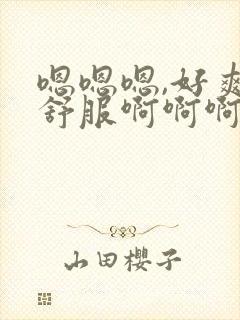 嗯嗯嗯,好爽
舒服啊啊啊
山田櫻子